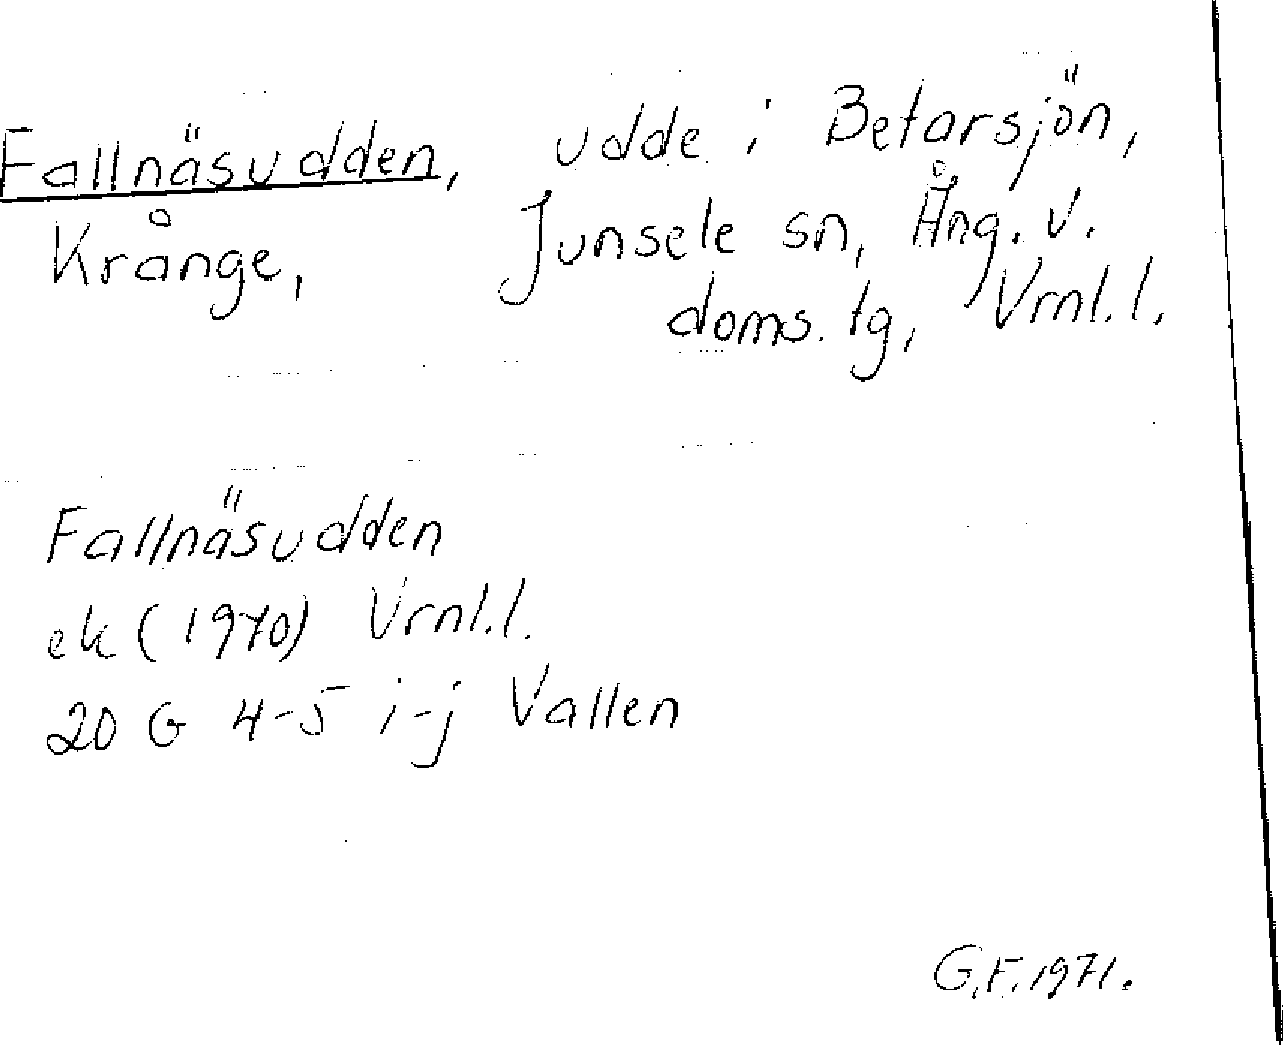 Fallnäsudden, udde i Betarsjön,
Krånge, Junsele sn, Ång. v.
doms. tg, Vrnl. l.
Fallnäsudden
ek (1970) Vrnl. l.
20 G 4-5 i-j Vallen
G.F. 1971.